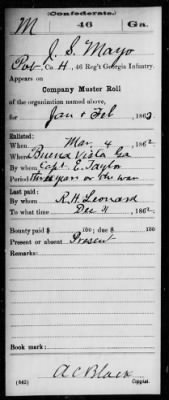 (Confederate.)
M 46 Ga.
J. S. Mayo
Pvt Co. H, 46 Reg't Georgia Infantry.
Appears on
Company Muster Roll
of the organization named above,
for Jan & Feb, 1863
Enlisted:
When Mar. 4, 1862
Where Buena Vista Ga
By whom Capt. E. Taylor
Period three years or the war
Last paid:
By whom R. H. Leonard
To what time Dec 31, 1862
Bounty paid $ 150; due $ 100
Present or absent Present
Remarks:
Book mark:
A C Black
(642) Copyist.